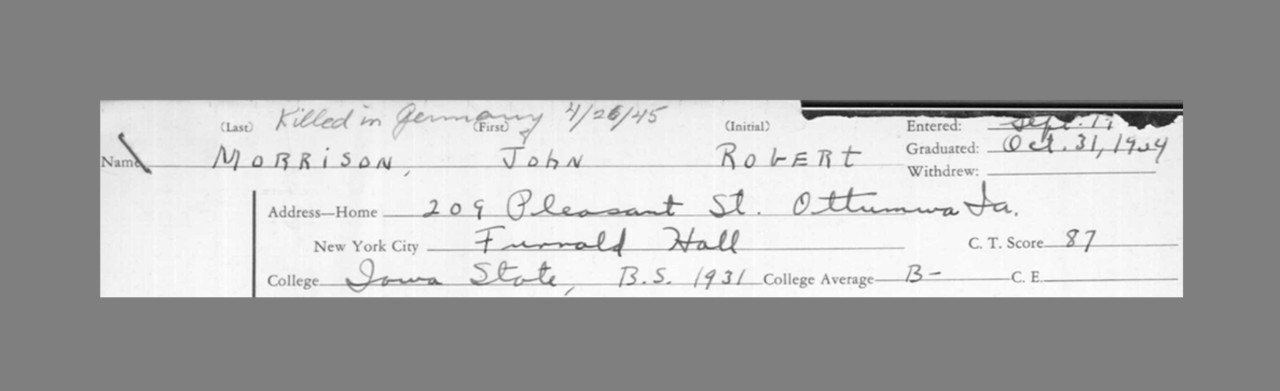 Killed in Germany 4/26/45
(Last) (First) (Initial) Entered: Sept. 17
Name MORRISON, JOHN ROBERT Graduated: Oct. 31, 1934
Withdrew:
Address—Home 209 Pleasant St. Ottumwa Ia.
New York City Furnald Hall C. T. Score 87
College Iowa State, B.S. 1931 College Average B- C. E.